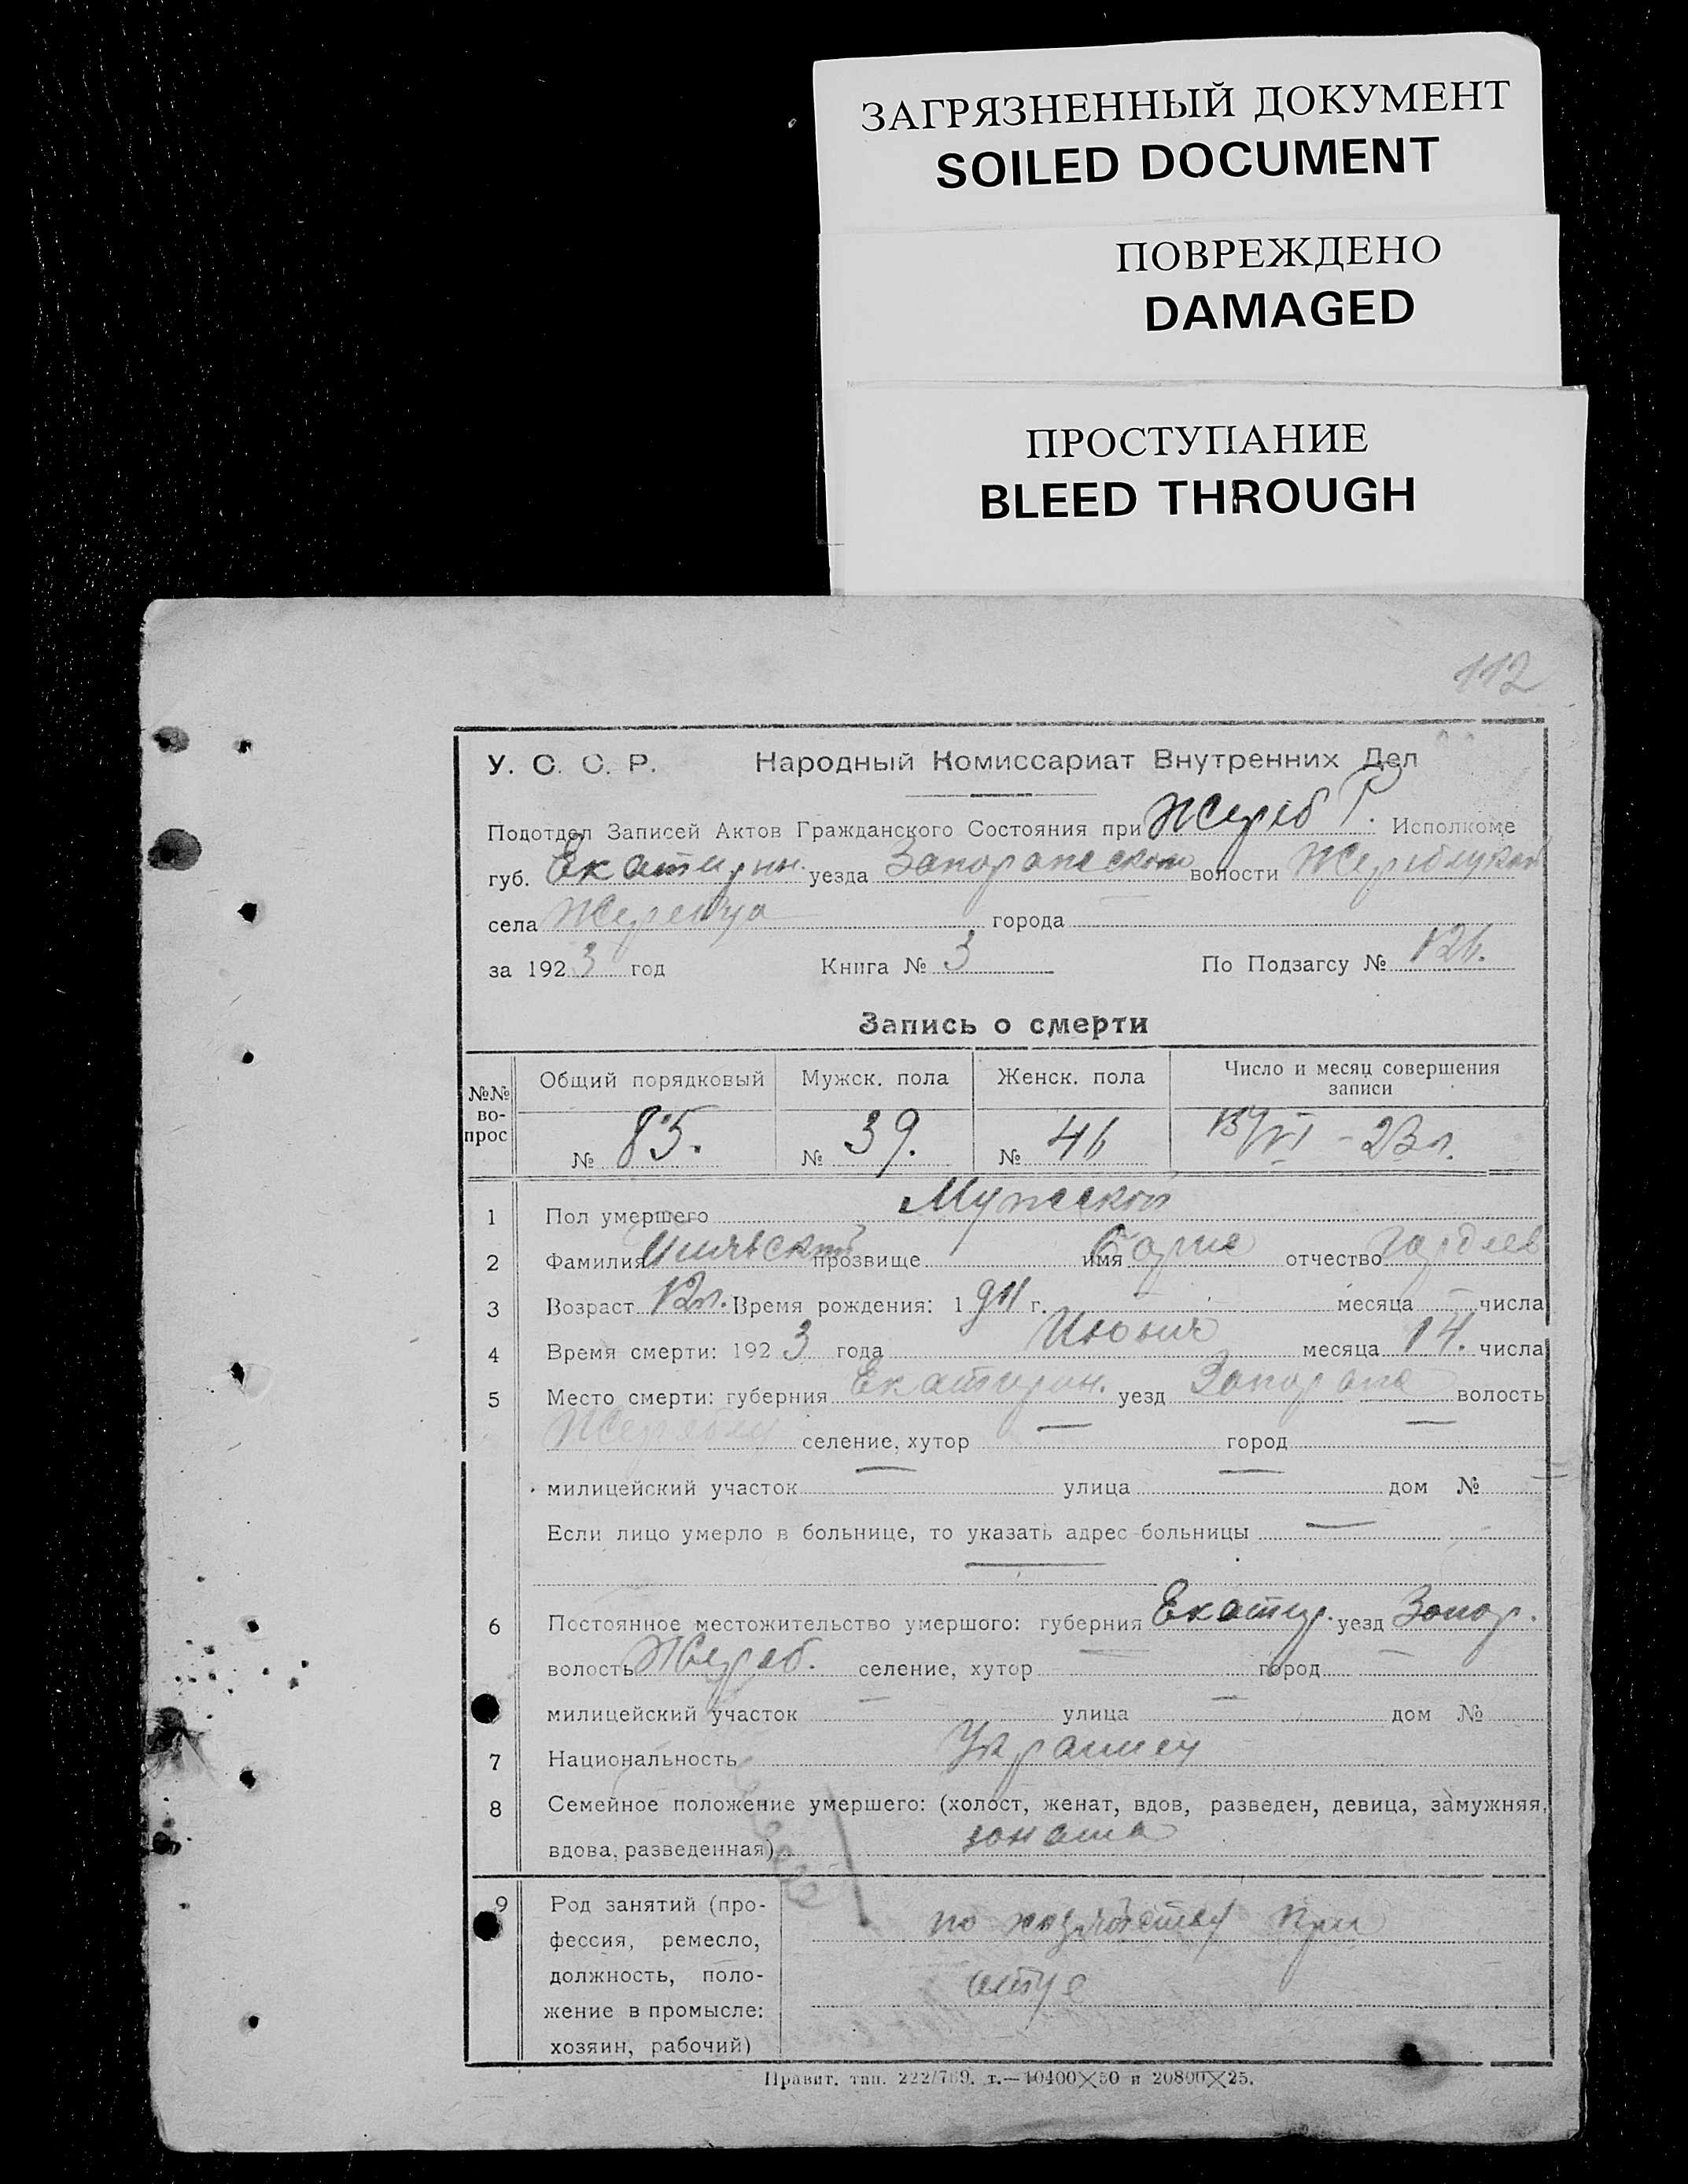 ЗАГРЯЗНЕННЫЙ ДОКУМЕНТ
SOILED DOCUMENT
ПОВРЕЖДЕНО
DAMAGED
ПРОСТУПАНИЕ
BLEED THROUGH
112
У. С. С. Р. Народный Комиссариат Внутренних Дел
Подотдел Записей Актов Гражданского Состояния при Жереб Р. Исполкоме
губ. Екатерин. уезда Запорожском волости
села города
за 1923 год Книга № 3 По Подзагсу № 126.
Запись о смерти
№№ во-прос Общий порядковый Мужск. пола Женск. пола Число и месяц совершения записи
№ 85. № 39. № 46 VI - 23 г.
1 Пол умершего Мужской
2 Фамилия прозвище имя отчество
3 Возраст 12 л. Время рождения: 1911 г. месяца числа
4 Время смерти: 1923 года Июня месяца 14. числа
5 Место смерти: губерния Екатерин. уезд Запорож волость
селение, хутор — город —
милицейский участок — улица — дом № —
Если лицо умерло в больнице, то указать адрес больницы —
6 Постоянное местожительство умершого: губерния Екатер. уезд Запор.
волость Жереб. селение, хутор — город —
милицейский участок — улица — дом №
7 Национальность Украинец
8 Семейное положение умершего: (холост, женат, вдов, разведен, девица, замужняя,
вдова, разведенная)
9 Род занятий (про-
фессия, ремесло, по хозяйству при
должность, поло-
жение в промысле: отце
хозяин, рабочий)
Правит. тип. 222/769. т.—10400×50 и 20800×25.